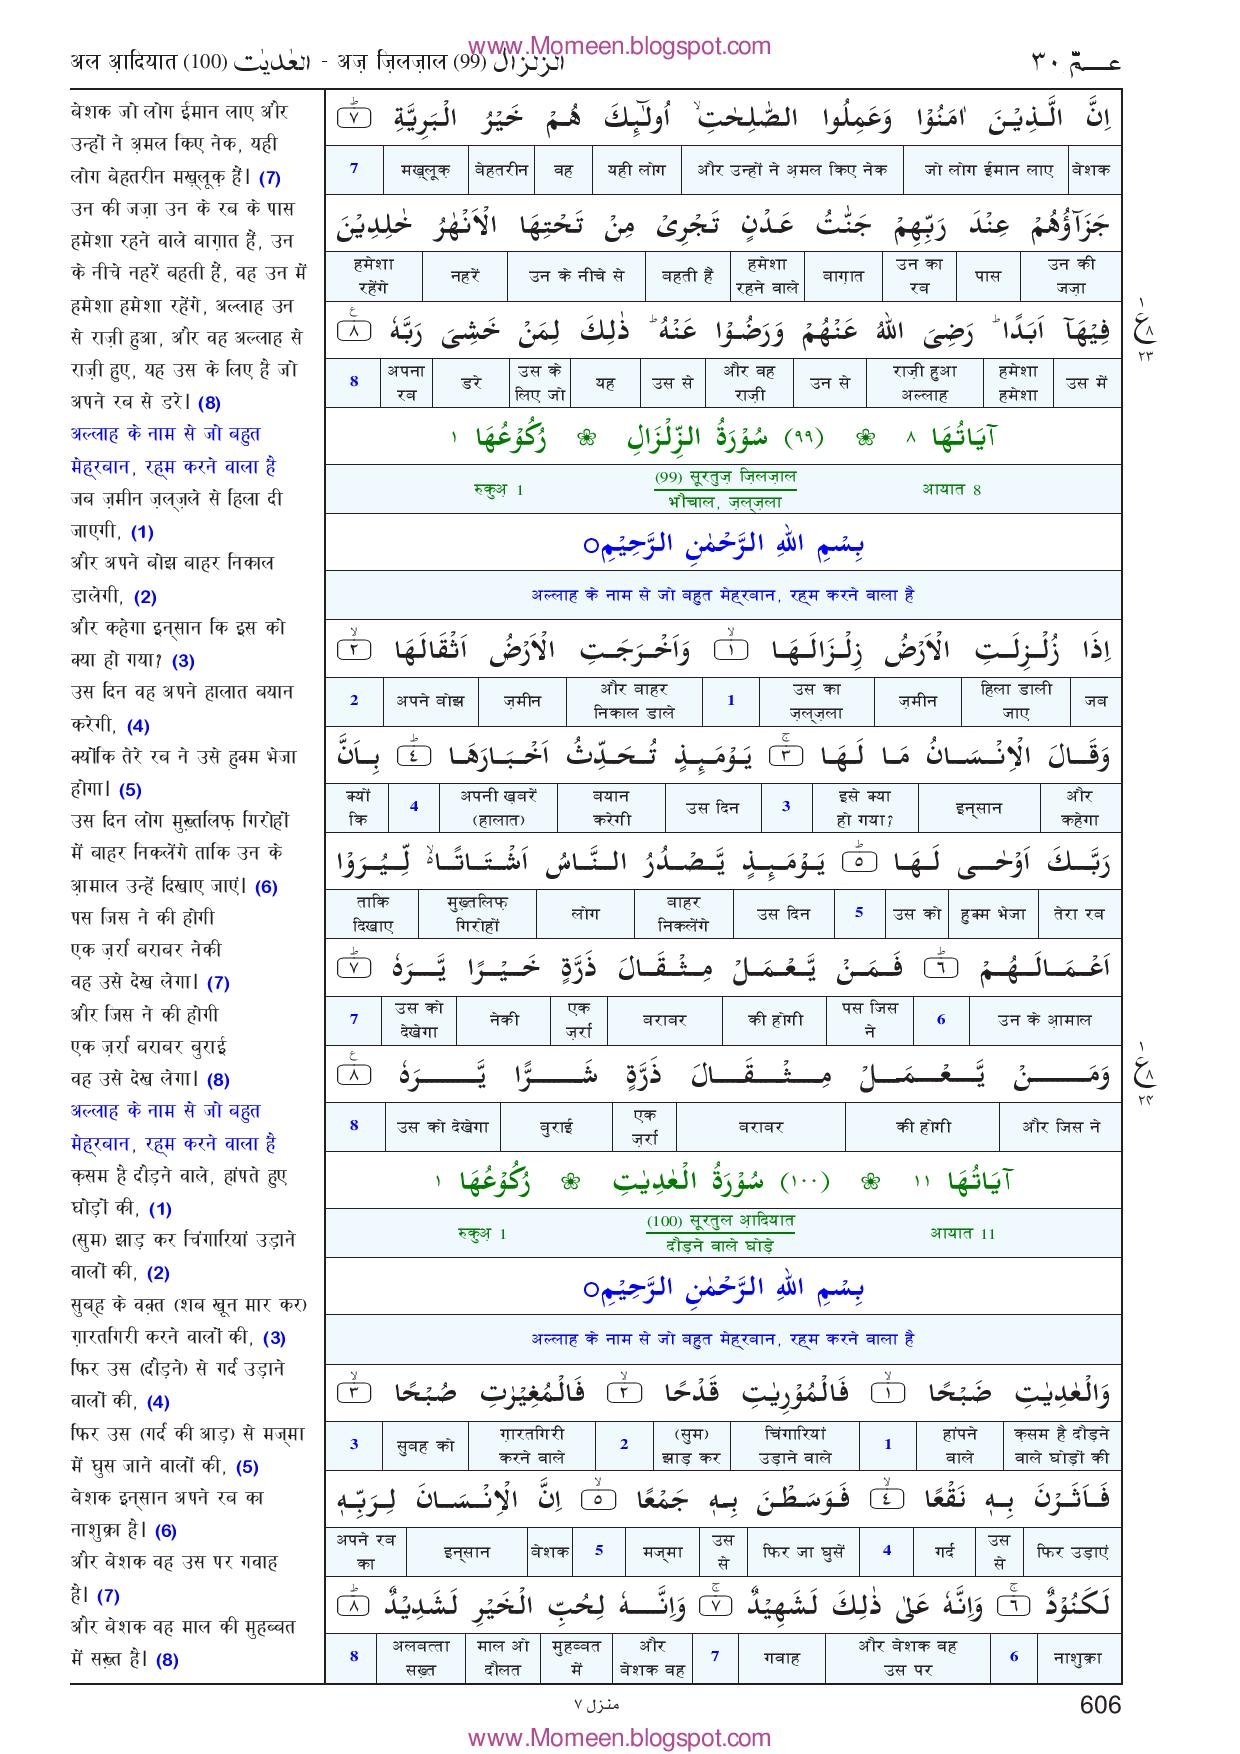 www.Momeen.blogspot.com
अल आ़दियात (100) العٰديٰت - अज़ ज़िलज़ाल (99) الزلزال
عـمّ ٣٠
बेशक जो लोग ईमान लाए और
उन्हों ने अ़मल किए नेक, यही
लोग बेहतरीन मख़्लूक़ हैं। (7)
उन की जज़ा उन के रब के पास
हमेशा रहने वाले बाग़ात हैं, उन
के नीचे नहरें बहती हैं, वह उन में
हमेशा हमेशा रहेंगे, अल्लाह उन
से राज़ी हुआ, और वह अल्लाह से
राज़ी हुए, यह उस के लिए है जो
अपने रब से डरे। (8)
अल्लाह के नाम से जो बहुत
मेह्रबान, रह्म करने वाला है
जब ज़मीन ज़ल्ज़ले से हिला दी
जाएगी, (1)
और अपने बोझ बाहर निकाल
डालेगी, (2)
और कहेगा इन्सान कि इस को
क्या हो गया? (3)
उस दिन वह अपने हालात बयान
करेगी, (4)
क्योंकि तेरे रब ने उसे हुक्म भेजा
होगा। (5)
उस दिन लोग मुख़्तलिफ़ गिरोहों
में बाहर निकलेंगे ताकि उन के
आ़माल उन्हें दिखाए जाएं। (6)
पस जिस ने की होगी
एक ज़र्रा बराबर नेकी
वह उसे देख लेगा। (7)
और जिस ने की होगी
एक ज़र्रा बराबर बुराई
वह उसे देख लेगा। (8)
अल्लाह के नाम से जो बहुत
मेह्रबान, रह्म करने वाला है
क़सम है दौड़ने वाले, हांपते हुए
घोड़ों की, (1)
(सुम) झाड़ कर चिंगारियां उड़ाने
वालों की, (2)
सुबह के वक़्त (शब खून मार कर)
ग़ारतगिरी करने वालों की, (3)
फिर उस (दौड़ने) से गर्द उड़ाने
वालों की, (4)
फिर उस (गर्द की आड़) से मज्मा
में घुस जाने वालों की, (5)
बेशक इन्सान अपने रब का
नाशुक्रा है। (6)
और बेशक वह उस पर गवाह
है। (7)
और बेशक वह माल की मुहब्बत
में सख़्त है। (8)
اِنَّ الَّذِيْنَ اٰمَنُوْا وَعَمِلُوا الصّٰلِحٰتِ ۙ اُولٰٓئِكَ هُمْ خَيْرُ الْبَرِيَّةِ ؕ ٧
बेशक जो लोग ईमान लाए और उन्हों ने अ़मल किए नेक यही लोग वह बेहतरीन मख़्लूक़ 7
جَزَآؤُهُمْ عِنْدَ رَبِّهِمْ جَنّٰتُ عَدْنٍ تَجْرِيْ مِنْ تَحْتِهَا الْاَنْهٰرُ خٰلِدِيْنَ
उन की जज़ा पास उन का रब बाग़ात हमेशा रहने वाले बहती है उन के नीचे से नहरें हमेशा रहेंगे
فِيْهَآ اَبَدًا ؕ رَضِيَ اللّٰهُ عَنْهُمْ وَرَضُوْا عَنْهُ ؕ ذٰلِكَ لِمَنْ خَشِيَ رَبَّهٗ ٨ ع
١ ع ٨ ٢٣
उस में हमेशा हमेशा राज़ी हुआ अल्लाह उन से और वह राज़ी उस से यह उस के लिए जो डरे अपना रब 8
آيَاتُهَا ٨ ❀ (٩٩) سُوْرَةُ الزِّلْزَالِ ❀ رُكُوْعُهَا ١
रुकुअ़ 1 (99) सूरतुज़ ज़िलज़ाल आयात 8
भौंचाल, ज़ल्ज़ला
بِسْمِ اللّٰهِ الرَّحْمٰنِ الرَّحِيْمِ○
अल्लाह के नाम से जो बहुत मेह्रबान, रह्म करने वाला है
اِذَا زُلْزِلَتِ الْاَرْضُ زِلْزَالَهَا ۙ ١ وَاَخْرَجَتِ الْاَرْضُ اَثْقَالَهَا ۙ ٢
जब हिला डाली जाए ज़मीन उस का ज़ल्ज़ला 1 और बाहर निकाल डाले ज़मीन अपने बोझ 2
وَقَالَ الْاِنْسَانُ مَا لَهَا ۚ ٣ يَوْمَئِذٍ تُحَدِّثُ اَخْبَارَهَا ؕ ٤ بِاَنَّ
और कहेगा इन्सान इसे क्या हो गया? 3 उस दिन बयान करेगी अपनी ख़बरें (हालात) 4 क्यों कि
رَبَّكَ اَوْحٰى لَهَا ؕ ٥ يَوْمَئِذٍ يَّصْدُرُ النَّاسُ اَشْتَاتًا ۙ لِّيُرَوْا
तेरा रब हुक्म भेजा उस को 5 उस दिन बाहर निकलेंगे लोग मुख़्तलिफ़ गिरोहों ताकि दिखाए
اَعْمَالَهُمْ ؕ ٦ فَمَنْ يَّعْمَلْ مِثْقَالَ ذَرَّةٍ خَيْرًا يَّرَهٗ ؕ ٧
उन के आ़माल 6 पस जिस ने की होगी बराबर एक ज़र्रा नेकी उस को देखेगा 7
وَمَنْ يَّعْمَلْ مِثْقَالَ ذَرَّةٍ شَرًّا يَّرَهٗ ٨ ع
١ ع ٨ ٢٤
और जिस ने की होगी बराबर एक ज़र्रा बुराई उस को देखेगा 8
آيَاتُهَا ١١ ❀ (١٠٠) سُوْرَةُ الْعٰدِيٰتِ ❀ رُكُوْعُهَا ١
रुकुअ़ 1 (100) सूरतुल आ़दियात आयात 11
दौड़ने वाले घोड़े
بِسْمِ اللّٰهِ الرَّحْمٰنِ الرَّحِيْمِ○
अल्लाह के नाम से जो बहुत मेह्रबान, रह्म करने वाला है
وَالْعٰدِيٰتِ ضَبْحًا ۙ ١ فَالْمُوْرِيٰتِ قَدْحًا ۙ ٢ فَالْمُغِيْرٰتِ صُبْحًا ۙ ٣
क़सम है दौड़ने वाले घोड़ों की हांपने वाले 1 चिंगारियां उड़ाने वाले (सुम) झाड़ कर 2 ग़ारतगिरी करने वाले सुबह को 3
فَاَثَرْنَ بِهٖ نَقْعًا ۙ ٤ فَوَسَطْنَ بِهٖ جَمْعًا ۙ ٥ اِنَّ الْاِنْسَانَ لِرَبِّهٖ
फिर उड़ाएं उस से गर्द 4 फिर जा घुसें उस से मज्मा 5 बेशक इन्सान अपने रब का
لَكَنُوْدٌ ۚ ٦ وَاِنَّهٗ عَلٰى ذٰلِكَ لَشَهِيْدٌ ۚ ٧ وَاِنَّهٗ لِحُبِّ الْخَيْرِ لَشَدِيْدٌ ؕ ٨
नाशुक्रा 6 और बेशक वह उस पर गवाह 7 और बेशक वह मुहब्बत में माल ओ दौलत अलबत्ता सख़्त 8
منزل ٧
606
www.Momeen.blogspot.com